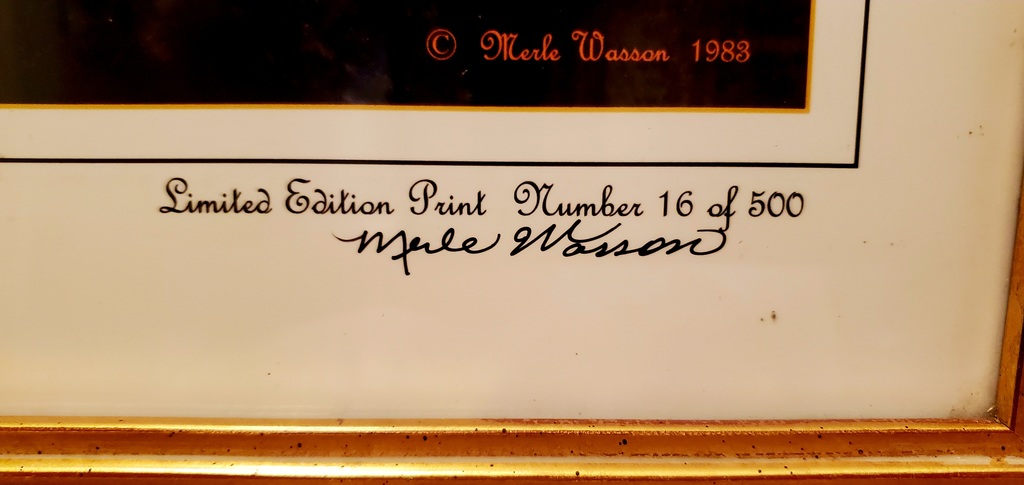 © Merle Wasson 1983
Limited Edition Print Number 16 of 500
Merle Wasson